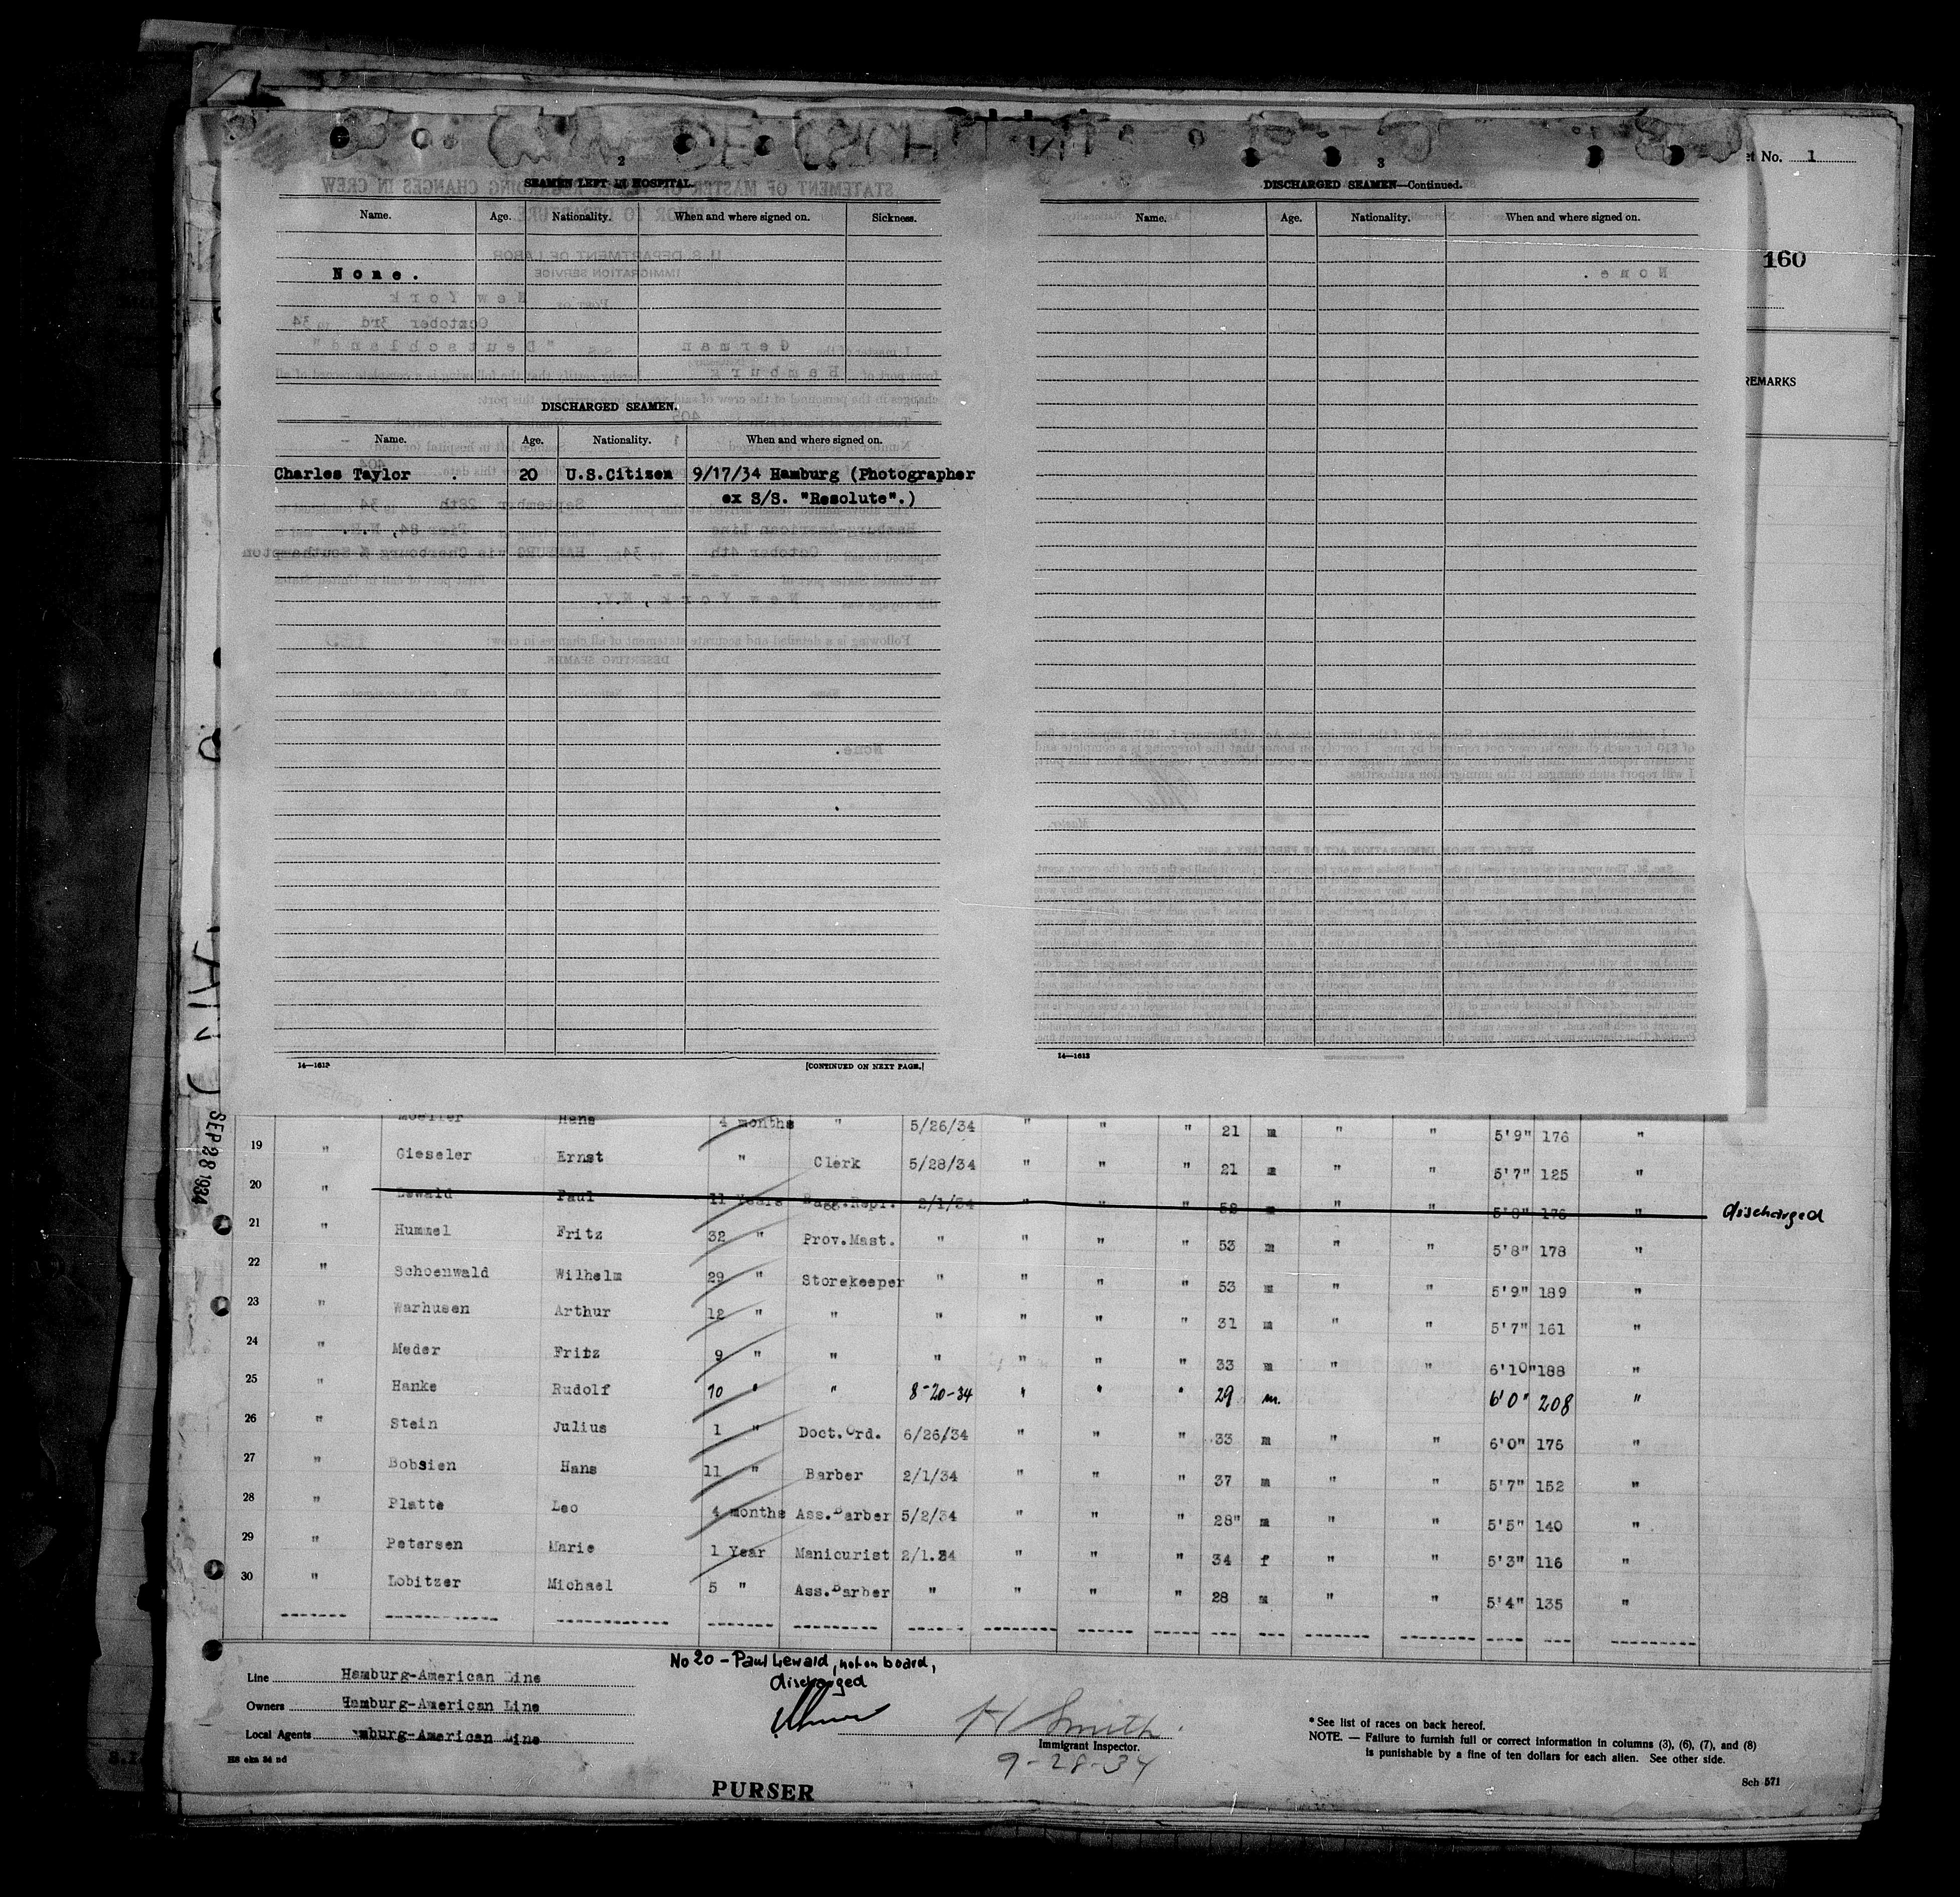 2
SEAMEN LEFT IN HOSPITAL.
Name. Age. Nationality. When and where signed on. Sickness.
None.
DISCHARGED SEAMEN.
Name. Age. Nationality. When and where signed on.
Charles Taylor . 20 U.S.Citizen 9/17/34 Hamburg (Photographer
ex S/S. "Resolute".)
14—1613
[CONTINUED ON NEXT PAGE.]
3
DISCHARGED SEAMEN—Continued.
Name. Age. Nationality. When and where signed on.
14—1613
No. 1
160
REMARKS
SEP 28 1934
Moeller Hans 4 months " 5/26/34 " " " 21 m " " 5'9" 176 "
19 " Gieseler Ernst " Clerk 5/28/34 " " " 21 m " " 5'7" 125 "
20 " Lewald Paul 11 Years Bagg.Repr. 2/1/34 " " " 52 m " " 5'8" 176 " discharged
21 " Hummel Fritz 32 " Prov.Mast. " " " " 53 m " " 5'8" 178 "
22 " Schoenwald Wilhelm 29 " Storekeeper " " " " 53 m " " 5'9" 189 "
23 " Warhusen Arthur 12 " " " " " " 31 m " " 5'7" 161 "
24 " Meder Fritz 9 " " " " " " 33 m " " 6'10" 188 "
25 " Hanke Rudolf 10 " " 8-20-34 " " " 29 m. 6'0" 208 "
26 " Stein Julius 1 " Doct.Ord. 6/26/34 " " " 33 m " " 6'0" 176 "
27 " Bobsien Hans 11 " Barber 2/1/34 " " " 37 m " " 5'7" 152 "
28 " Platte Leo 4 months Ass.Barber 5/2/34 " " " 28" m " " 5'5" 140 "
29 " Petersen Marie 1 Year Manicurist 2/1.34 " " " 34 f " " 5'3" 116 "
30 " Lobitzer Michael 5 " Ass.Barber " " " " 28 m " " 5'4" 135 "
No 20 - Paul Lewald, not on board,
discharged
Line Hamburg-American Line
Owners Hamburg-American Line
Local Agents mburg-American Line
H Smith.
Immigrant Inspector.
9-28-34
PURSER
* See list of races on back hereof.
NOTE. — Failure to furnish full or correct information in columns (3), (6), (7), and (8)
is punishable by a fine of ten dollars for each alien. See other side.
Sch 571